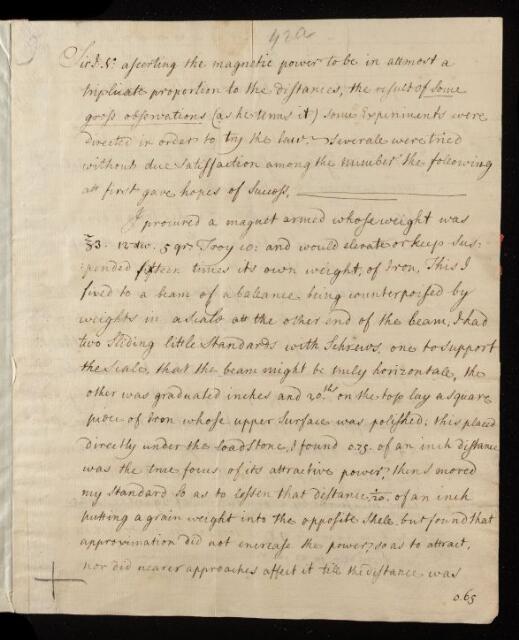 42a
Sir I. N: aserting the magnetic power to be in allmost a
triplicate proportion to the distances, the result of some
gross observations (as he terms it) some Experiments were
directed in order to try the law. Severale were tried
without due Satisfaction among the number the following
att first gave hopes of Success.
I procured a magnet armed whose weight was
℥3. 12 dw. 5 gr. Troy and would elevate or keep sus:
pended fifteen times its own weight, of Iron, This I
fixed to a beam of a ballance being counterpoised by
weights in a Scale att the other end of the beam, I had
two Sliding little Standards with Schrews, one to support
the Scale, that the beam might be truly horizontale, the
other was graduated inches and 20.ths on the top lay a square
piece of Iron whose upper Surface was polished: this placed
directly under the loadStone, I found 0.75. of an inch distance
was the true focus of its attractive power, then I moved
my Standard so as to lessen that distance 1/20. of an inch
putting a grain weight into the opposite Skele, but found that
approximation did not encrease the power, so as to attract,
nor did nearer approaches affect it till the distance was
0.65